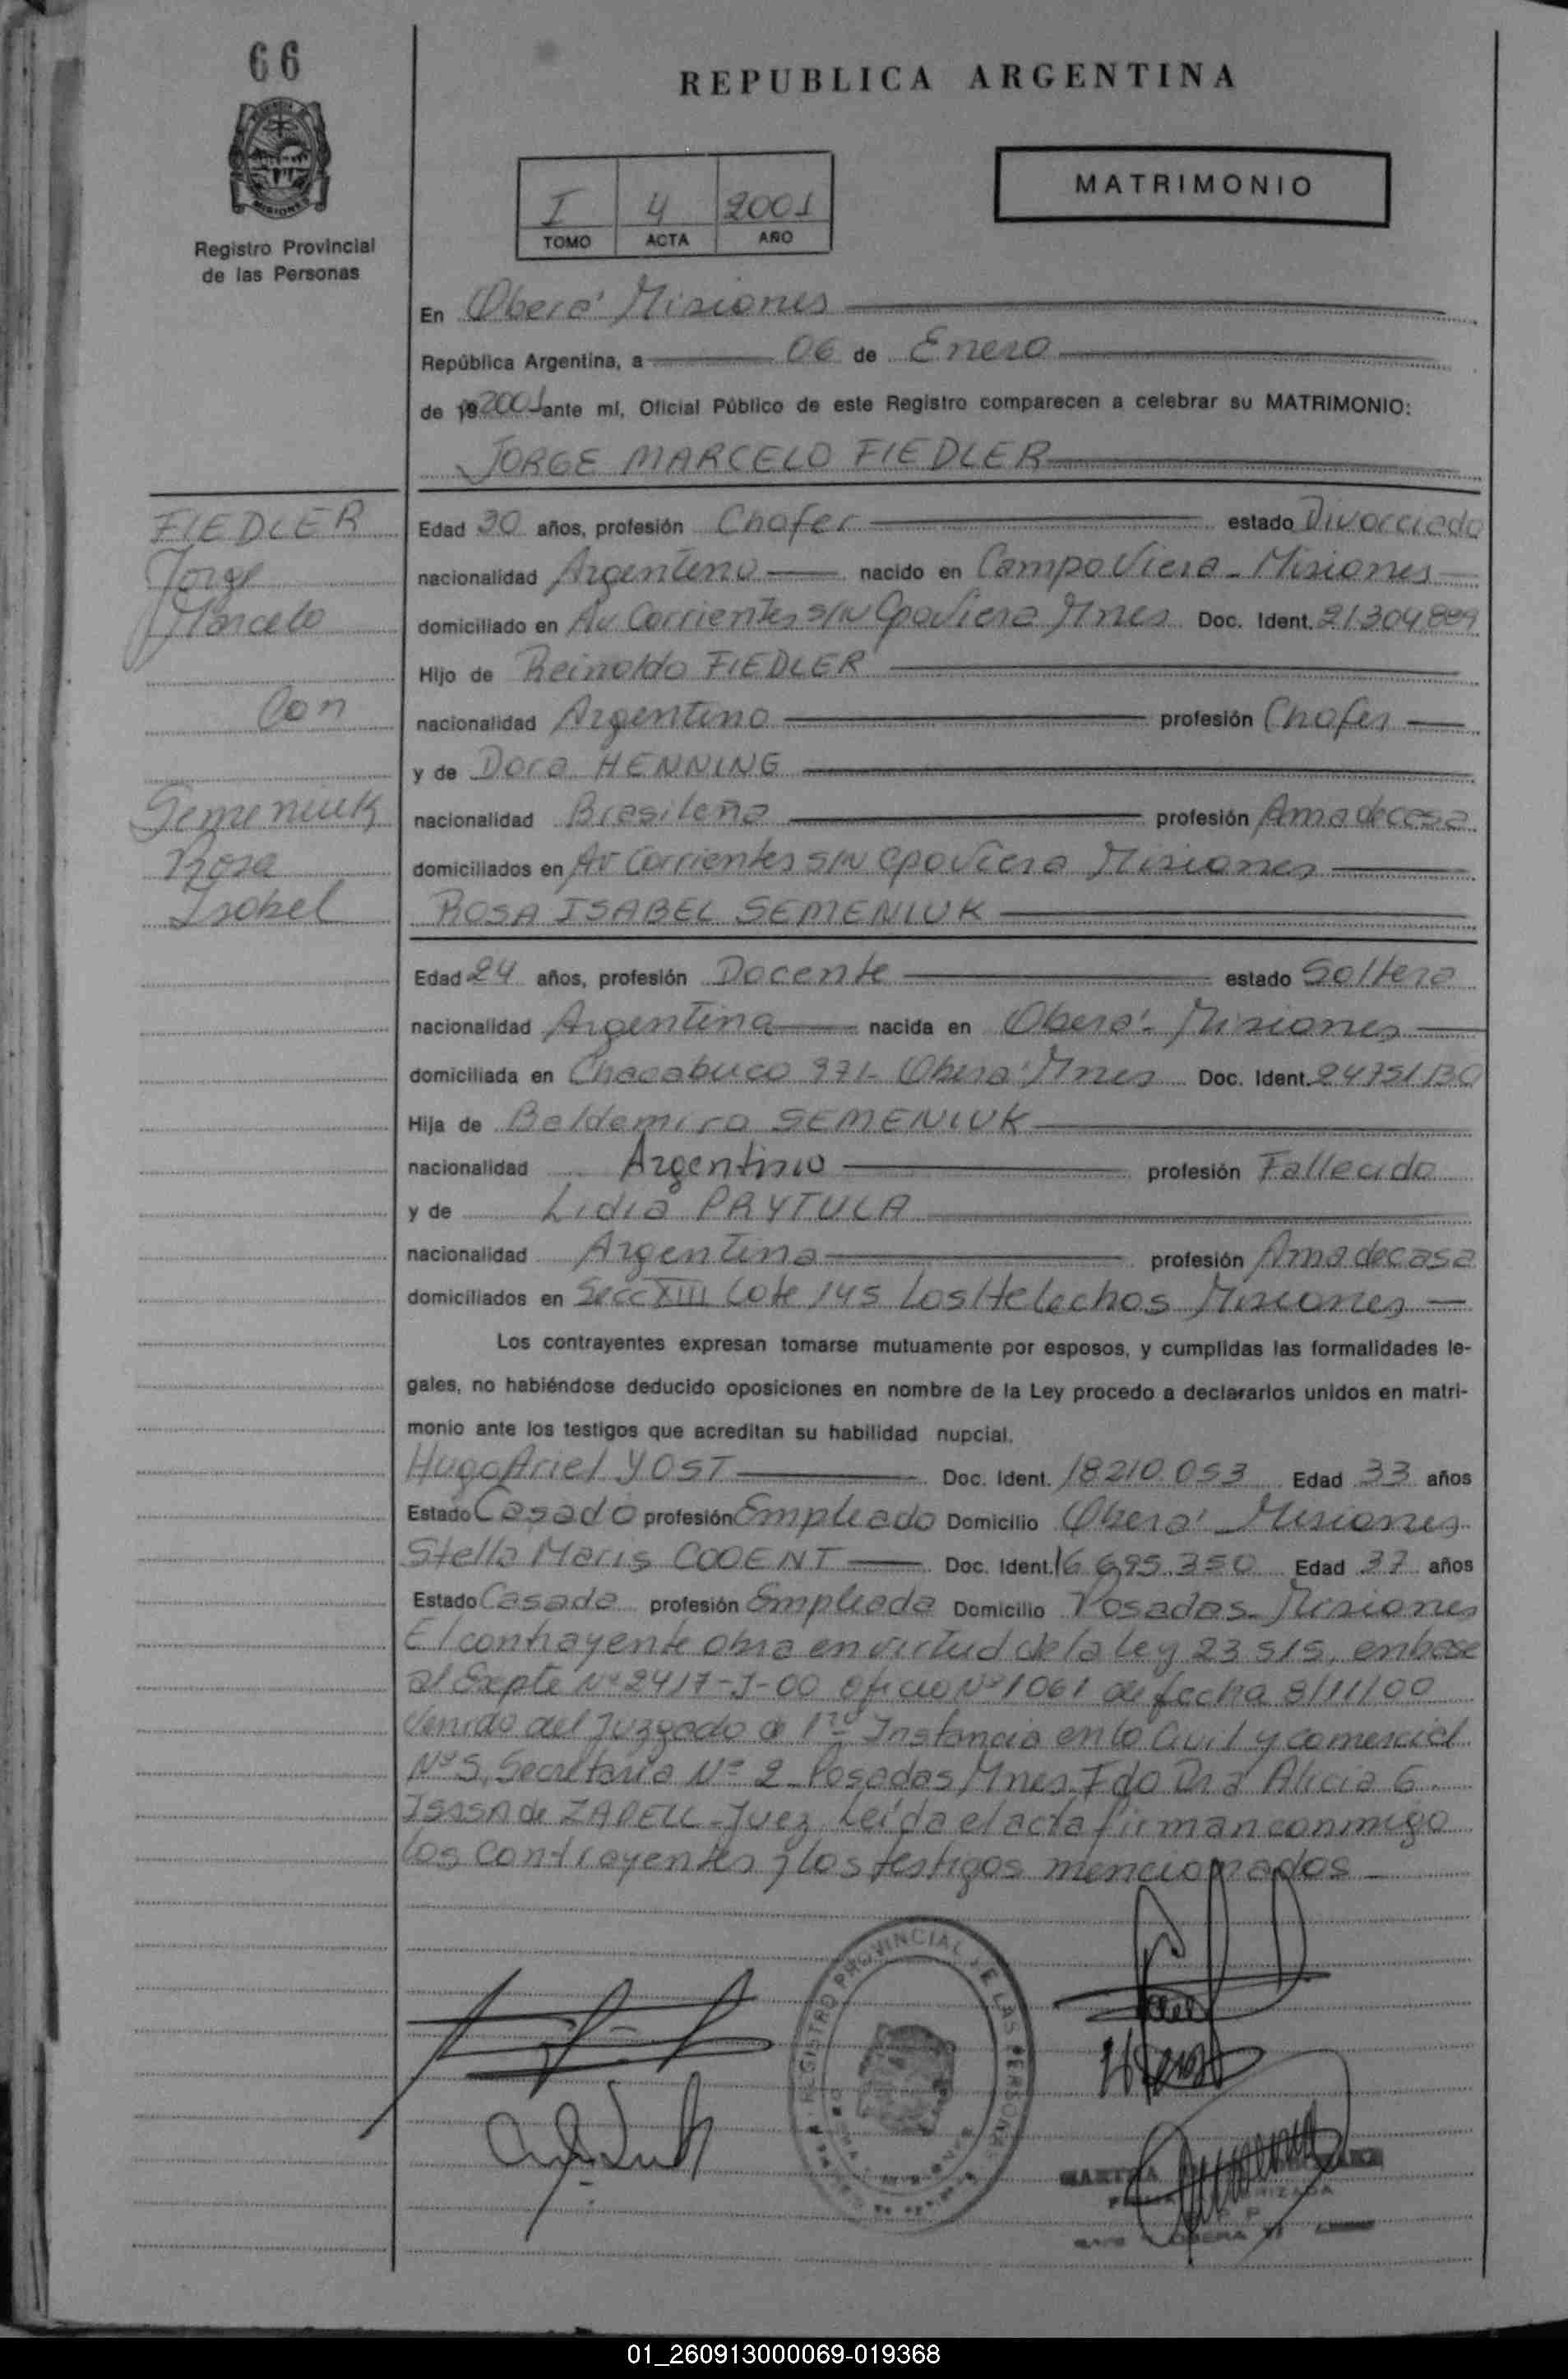 66
REPUBLICA ARGENTINA
MISIONES
Registro Provincial
de las Personas
I 4 2001
TOMO ACTA AÑO
MATRIMONIO
En Oberá Misiones
República Argentina, a 06 de Enero
de 19 2001 ante mí, Oficial Público de este Registro comparecen a celebrar su MATRIMONIO:
JORGE MARCELO FIEDLER
FIEDLER
Jorge
Marcelo
Con
Semeniuk
Rosa
Isabel
Edad 30 años, profesión Chofer estado Divorciado
nacionalidad Argentino nacido en Campo Viera - Misiones
domiciliado en Av Corrientes S/N Cpo Viera Mnes Doc. Ident. 21.304.889
Hijo de Reinoldo FIEDLER
nacionalidad Argentino profesión Chofer
y de Dora HENNING
nacionalidad Brasileña profesión Ama de casa
domiciliados en Av Corrientes S/N Cpo Viera Misiones
ROSA ISABEL SEMENIUK
Edad 24 años, profesión Docente estado Soltera
nacionalidad Argentina nacida en Oberá - Misiones
domiciliada en Chacabuco 971 - Oberá Mnes Doc. Ident. 24751130
Hija de Beldemiro SEMENIUK
nacionalidad Argentino profesión Fallecido
y de Lidia PRYTULA
nacionalidad Argentina profesión Ama de casa
domiciliados en Secc XIII Lote 145 Los Helechos Misiones
Los contrayentes expresan tomarse mutuamente por esposos, y cumplidas las formalidades le-
gales, no habiéndose deducido oposiciones en nombre de la Ley procedo a declararlos unidos en matri-
monio ante los testigos que acreditan su habilidad nupcial.
Hugo Ariel YOST Doc. Ident. 18210.053 Edad 33 años
Estado Casado profesión Empleado Domicilio Oberá Misiones
Stella Maris COOENT Doc. Ident. 16.695.350 Edad 37 años
Estado Casada profesión Empleada Domicilio Posadas - Misiones
El contrayente obra en virtud de la ley 23515, en base
al Expte Nº 2417-J-00 oficio Nº 1061 de fecha 8/11/00
Venido del Juzgado de 1ra Instancia en lo Civil y comercial
Nº 5, Secretaria Nº 2 Posadas, Mnes. Fdo Dra Alicia G.
ISSSA de ZAPELL - Juez. Leída el acta firman conmigo
los contrayentes y los testigos mencionados
REGISTRO PROVINCIAL DE LAS PERSONAS
01_260913000069-019368